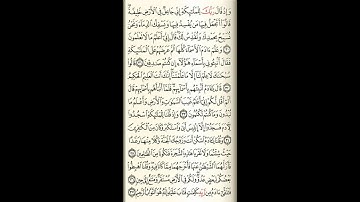 وَإِذْ قَالَ رَبُّكَ لِلْمَلَٰٓئِكَةِ إِنِّى جَاعِلٌ فِى ٱلْأَرْضِ خَلِيفَةً
قَالُوٓا۟ أَتَجْعَلُ فِيهَا مَن يُفْسِدُ فِيهَا وَيَسْفِكُ ٱلدِّمَآءَ وَنَحْنُ
نُسَبِّحُ بِحَمْدِكَ وَنُقَدِّسُ لَكَ قَالَ إِنِّىٓ أَعْلَمُ مَا لَا تَعْلَمُونَ
وَعَلَّمَ ءَادَمَ ٱلْأَسْمَآءَ كُلَّهَا ثُمَّ عَرَضَهُمْ عَلَى ٱلْمَلَٰٓئِكَةِ
فَقَالَ أَنۢبِـُٔونِى بِأَسْمَآءِ هَٰٓؤُلَآءِ إِن كُنتُمْ صَٰدِقِينَ قَالُوا۟
سُبْحَٰنَكَ لَا عِلْمَ لَنَآ إِلَّا مَا عَلَّمْتَنَآ إِنَّكَ أَنتَ ٱلْعَلِيمُ ٱلْحَكِيمُ
قَالَ يَٰٓـَٔادَمُ أَنۢبِئْهُم بِأَسْمَآئِهِمْ فَلَمَّآ أَنۢبَأَهُم بِأَسْمَآئِهِمْ قَالَ
أَلَمْ أَقُل لَّكُمْ إِنِّىٓ أَعْلَمُ غَيْبَ ٱلسَّمَٰوَٰتِ وَٱلْأَرْضِ وَأَعْلَمُ مَا
تُبْدُونَ وَمَا كُنتُمْ تَكْتُمُونَ وَإِذْ قُلْنَا لِلْمَلَٰٓئِكَةِ ٱسْجُدُوا۟
لِـَٔادَمَ فَسَجَدُوٓا۟ إِلَّآ إِبْلِيسَ أَبَىٰ وَٱسْتَكْبَرَ وَكَانَ مِنَ ٱلْكَٰفِرِينَ
وَقُلْنَا يَٰٓـَٔادَمُ ٱسْكُنْ أَنتَ وَزَوْجُكَ ٱلْجَنَّةَ وَكُلَا مِنْهَا رَغَدًا
حَيْثُ شِئْتُمَا وَلَا تَقْرَبَا هَٰذِهِ ٱلشَّجَرَةَ فَتَكُونَا مِنَ ٱلظَّٰلِمِينَ
فَأَزَلَّهُمَا ٱلشَّيْطَٰنُ عَنْهَا فَأَخْرَجَهُمَا مِمَّا كَانَا فِيهِ وَقُلْنَا ٱهْبِطُوا۟
بَعْضُكُمْ لِبَعْضٍ عَدُوٌّ وَلَكُمْ فِى ٱلْأَرْضِ مُسْتَقَرٌّ وَمَتَٰعٌ إِلَىٰ حِينٍ
فَتَلَقَّىٰٓ ءَادَمُ مِن رَّبِّهِۦ كَلِمَٰتٍ فَتَابَ عَلَيْهِ إِنَّهُۥ هُوَ ٱلتَّوَّابُ ٱلرَّحِيمُ